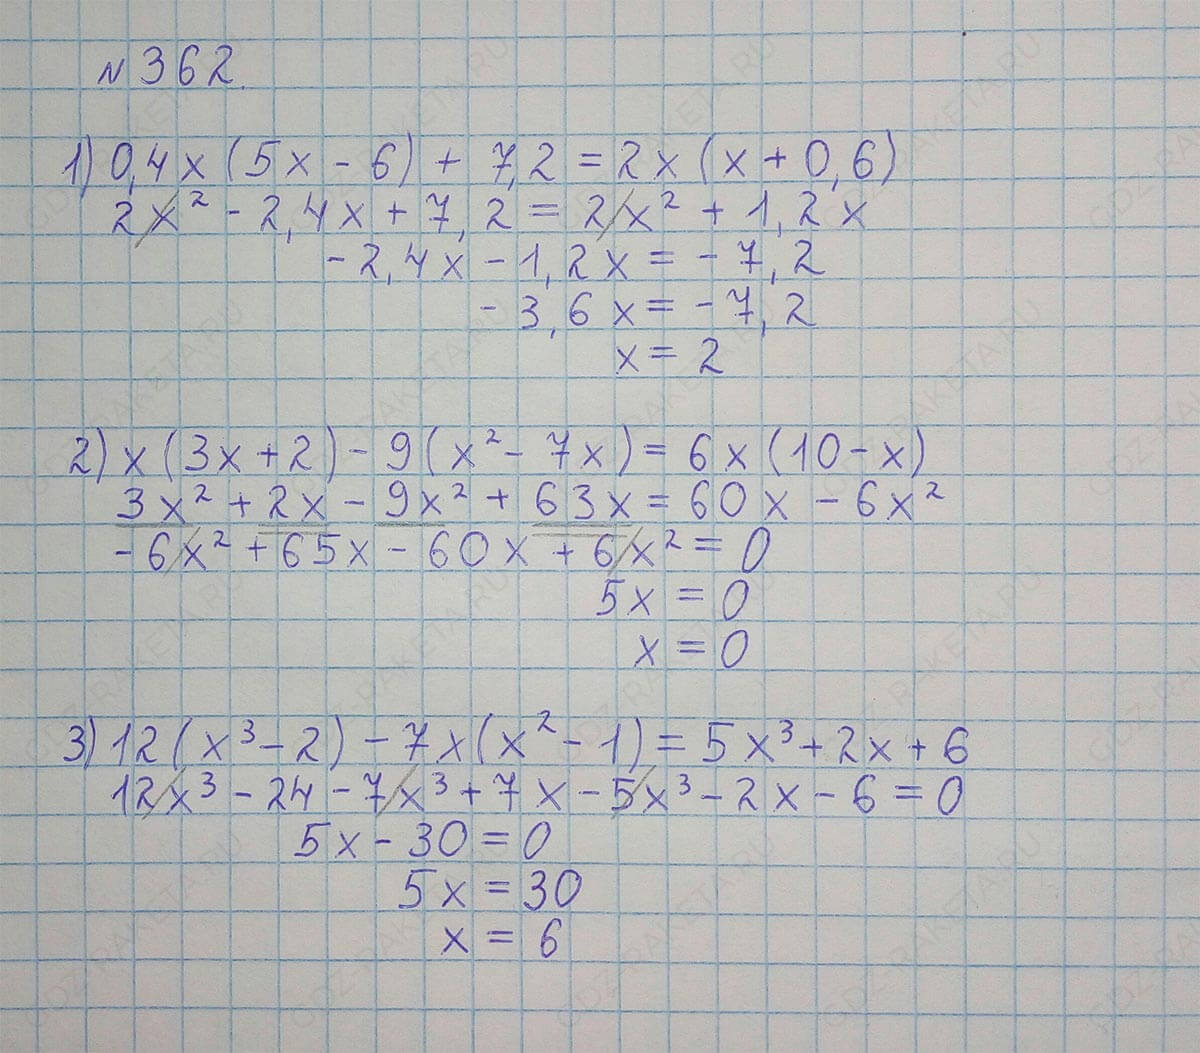 № 362.
1) 0,4x (5x - 6) + 7,2 = 2x (x + 0,6)
2x² - 2,4x + 7,2 = 2x² + 1,2x
-2,4x - 1,2x = -7,2
-3,6x = -7,2
x = 2
2) x (3x + 2) - 9 (x² - 7x) = 6x (10 - x)
3x² + 2x - 9x² + 63x = 60x - 6x²
-6x² + 65x - 60x + 6x² = 0
5x = 0
x = 0
3) 12 (x³ - 2) - 7x (x² - 1) = 5x³ + 2x + 6
12x³ - 24 - 7x³ + 7x - 5x³ - 2x - 6 = 0
5x - 30 = 0
5x = 30
x = 6
GDZ-RAKETA.RU